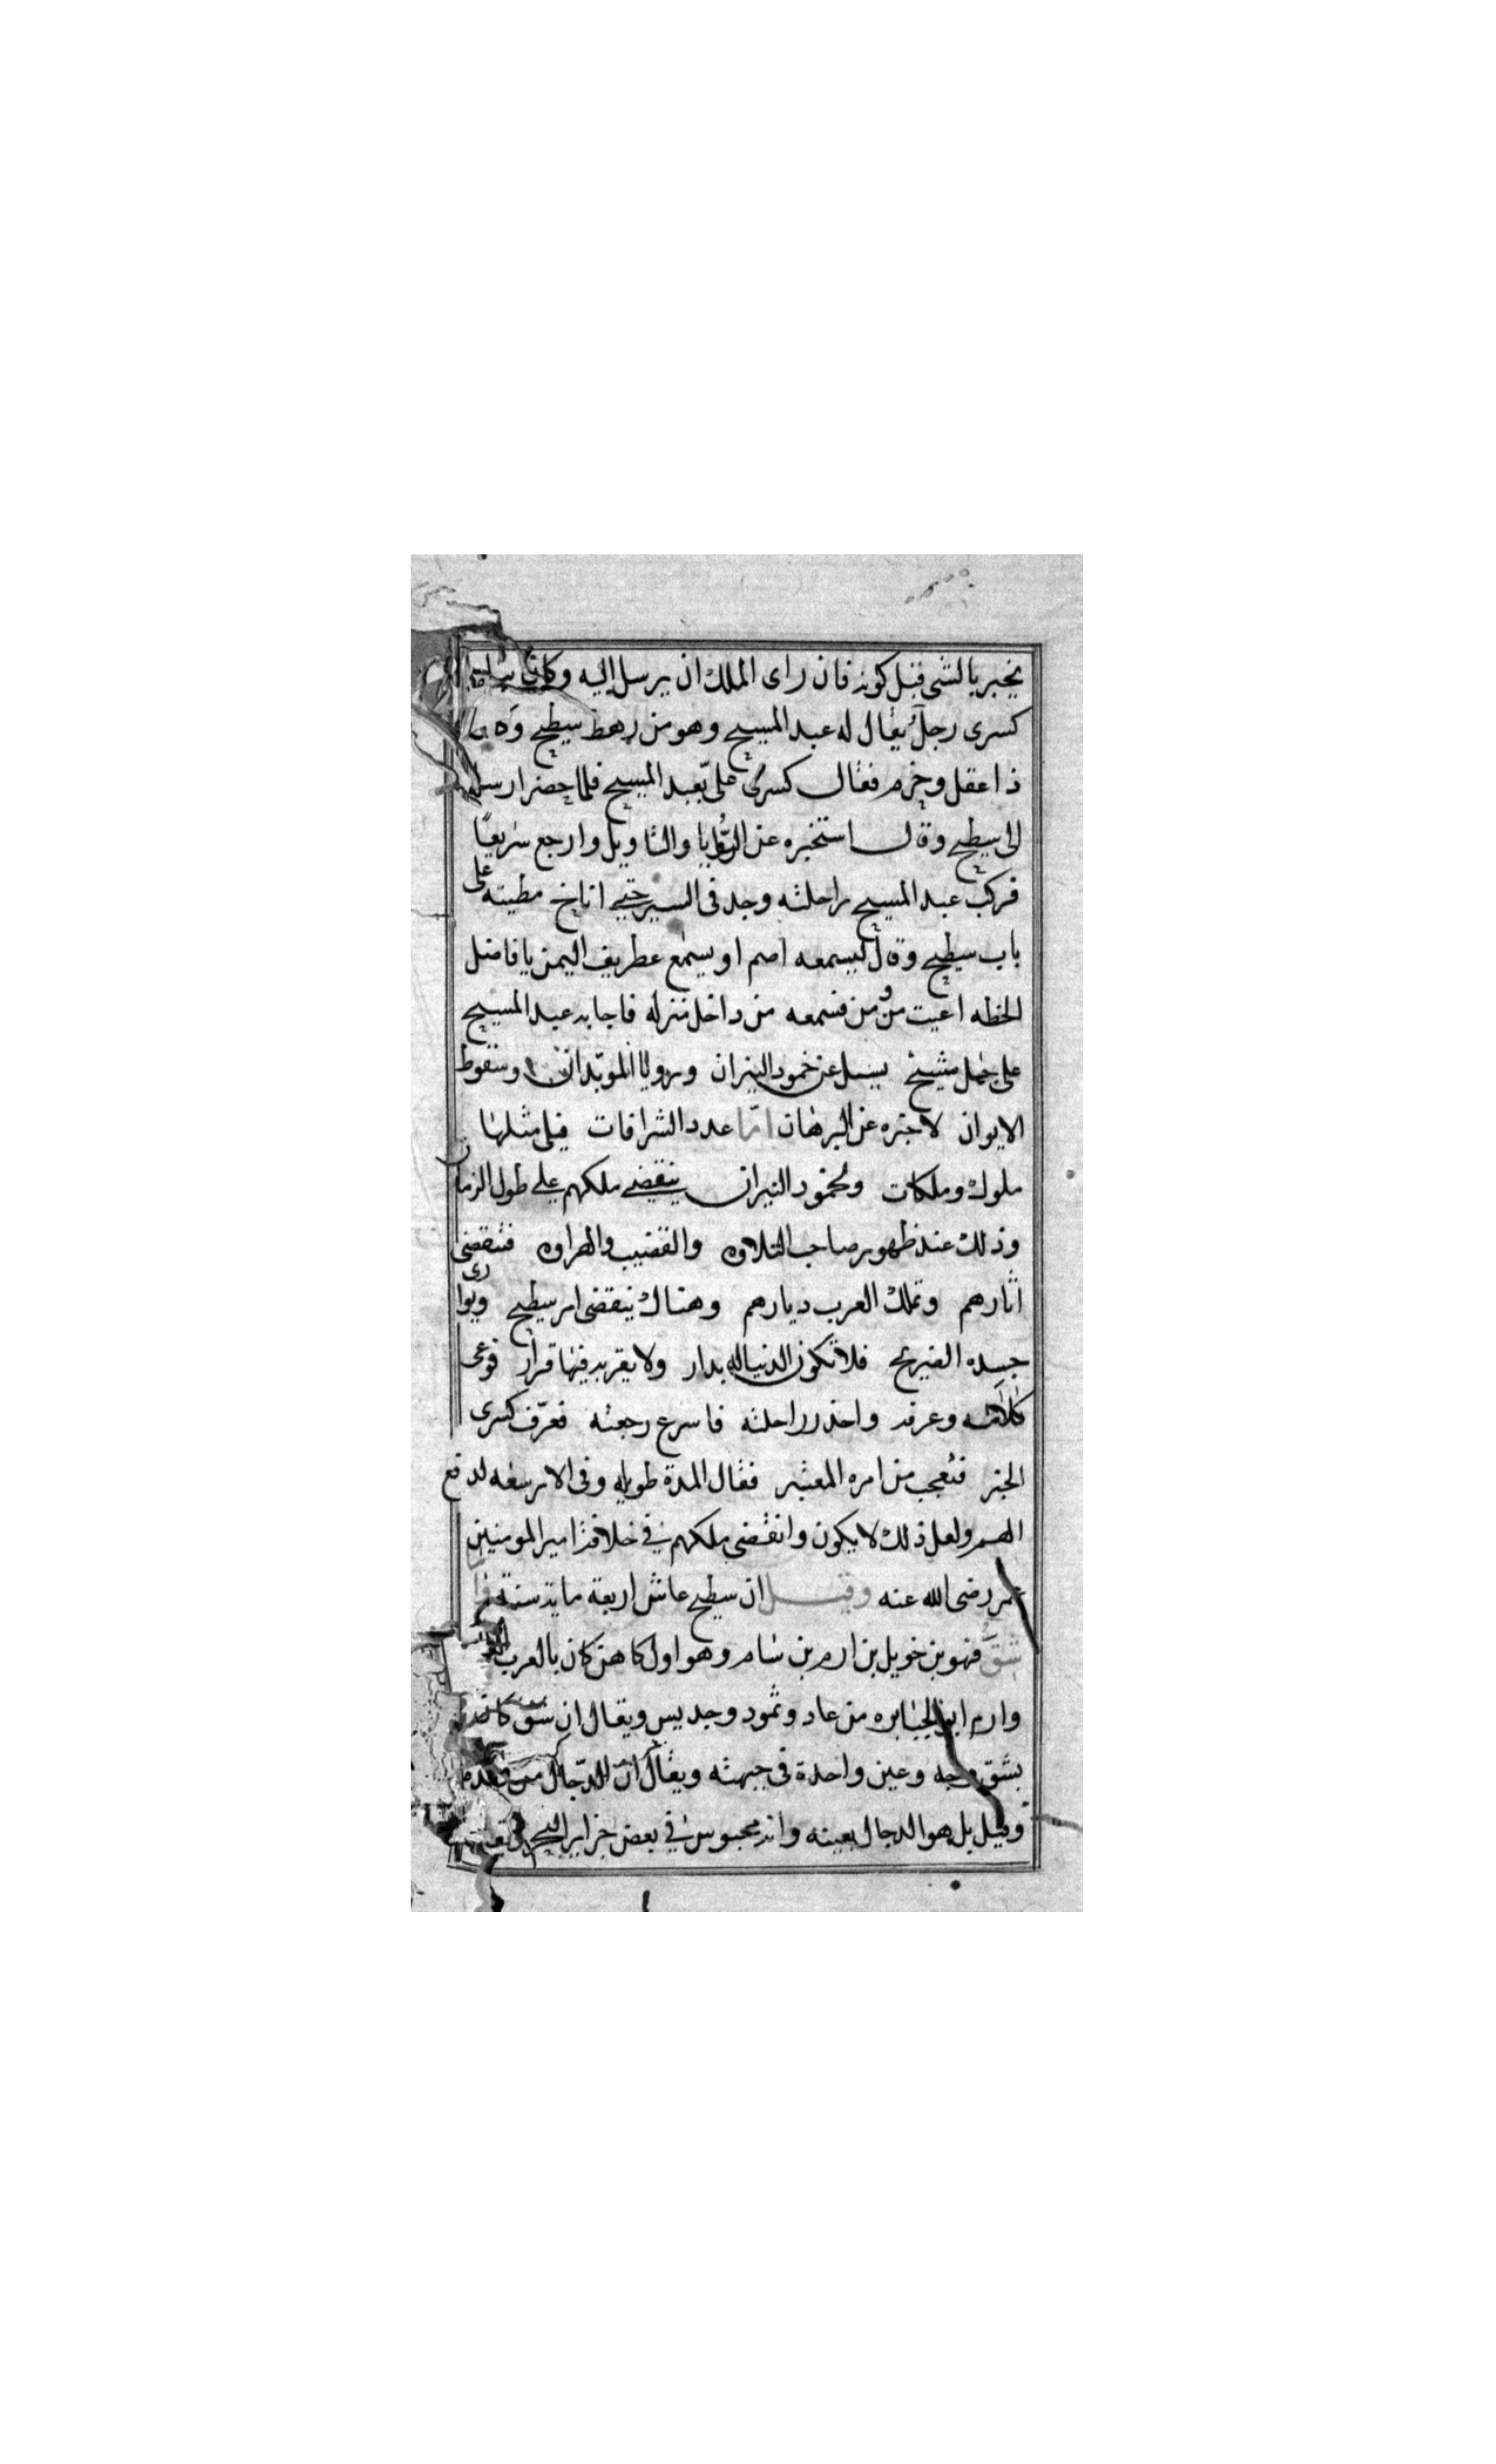 يخبر بالشى قبل كونه فان راى الملك ان يرسل اليه وكان بباب
كسرى رجلٌ يقال له عبد المسيح وهو من رهط سطيح وكان
ذا عقل وحزم فقال كسرى علىّ بعبد المسيح فلما حضر ارسله
الى سطيح وقال استخبره عن الرؤيا والتاويل وارجع سريعًا
فركب عبد المسيح راحلته وجد فى السير حتى اناخ مطيته على
باب سطيح وقال ليسمعه اصم او يسمع عطريف اليمن يا فاضل
الخطه اعيت من ومن فسمعه من داخل منزله فاجابه عبد المسيح
على جمل مشيح يسئل عن خمود النيران ورويا الموبذان وسقوط
الايوان لاخبره عن البرهان امّا عدد الشرافات فيلى مثلها
ملوك وملكات وبخمود النيران ينقضى ملكهم على طول الزمان
وذلك عند ظهور صاحب التلاوه والقضيب والهراوه فتنقضى
اثارهم وتملك العرب ديارهم وهناك ينقضى امر سطيح ويوارى
جسده الضريح فلا تكون الدنيا له بدار ولا يقر به فيها قرار فوعى
كلامه وعرفه واخذ راحلته فاسرع رجعته فعرّف كسرى
الخبر فتعجب من امره المعتبر فقال المدة طويله وفى الامر سعه لدفع
الهم ولعل ذلك لا يكون وانقضى ملكهم فى خلافة امير المومنين
عمر رضى الله عنه وقيل ان سطيح عاش اربعة ماية سنة وا
شق فهو بن خويل بن ارم بن سام وهو اول كاهن كان بالعرب
وارم ابو الجبابره من عاد وثمود وجديس ويقال ان شق كان
بشق وجه وعين واحدة فى جبهته ويقال ان الدجال من
وقيل بل هو الدجال بعينه وانه محبوس فى بعض جزاير البحر